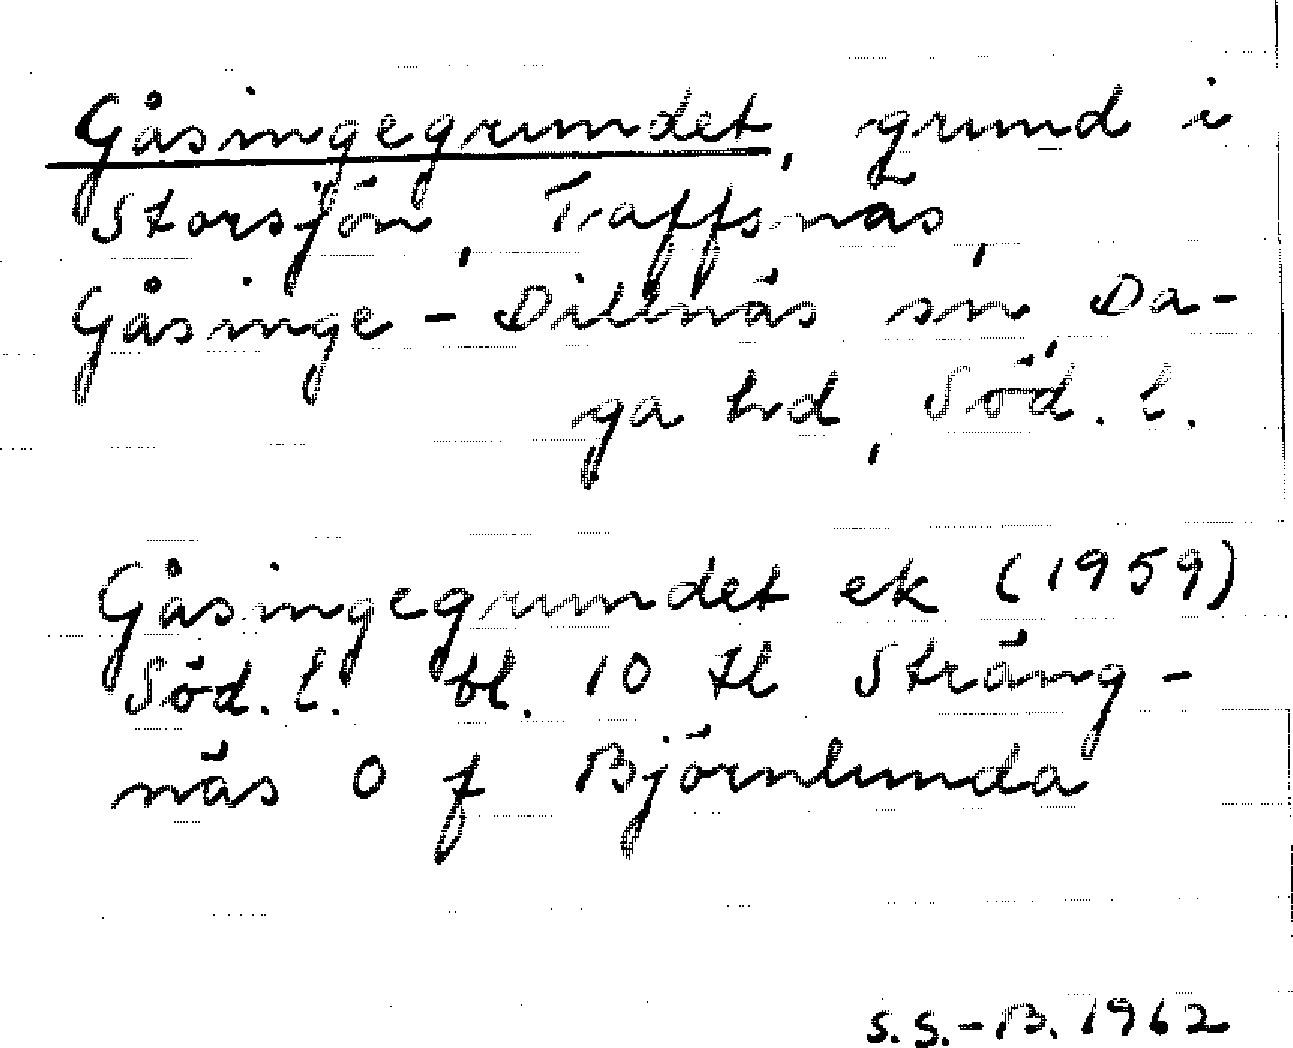 Gåsingegrundet, grund i
Storsjön, Taffsnäs,
Gåsinge - Dillnäs sn, Da-
ga hd, Söd. l.
Gåsingegrundet ek (1959)
Söd. l. bl. 10 tl Sträng-
näs O f Björnlunda
S.S.-B. 1962